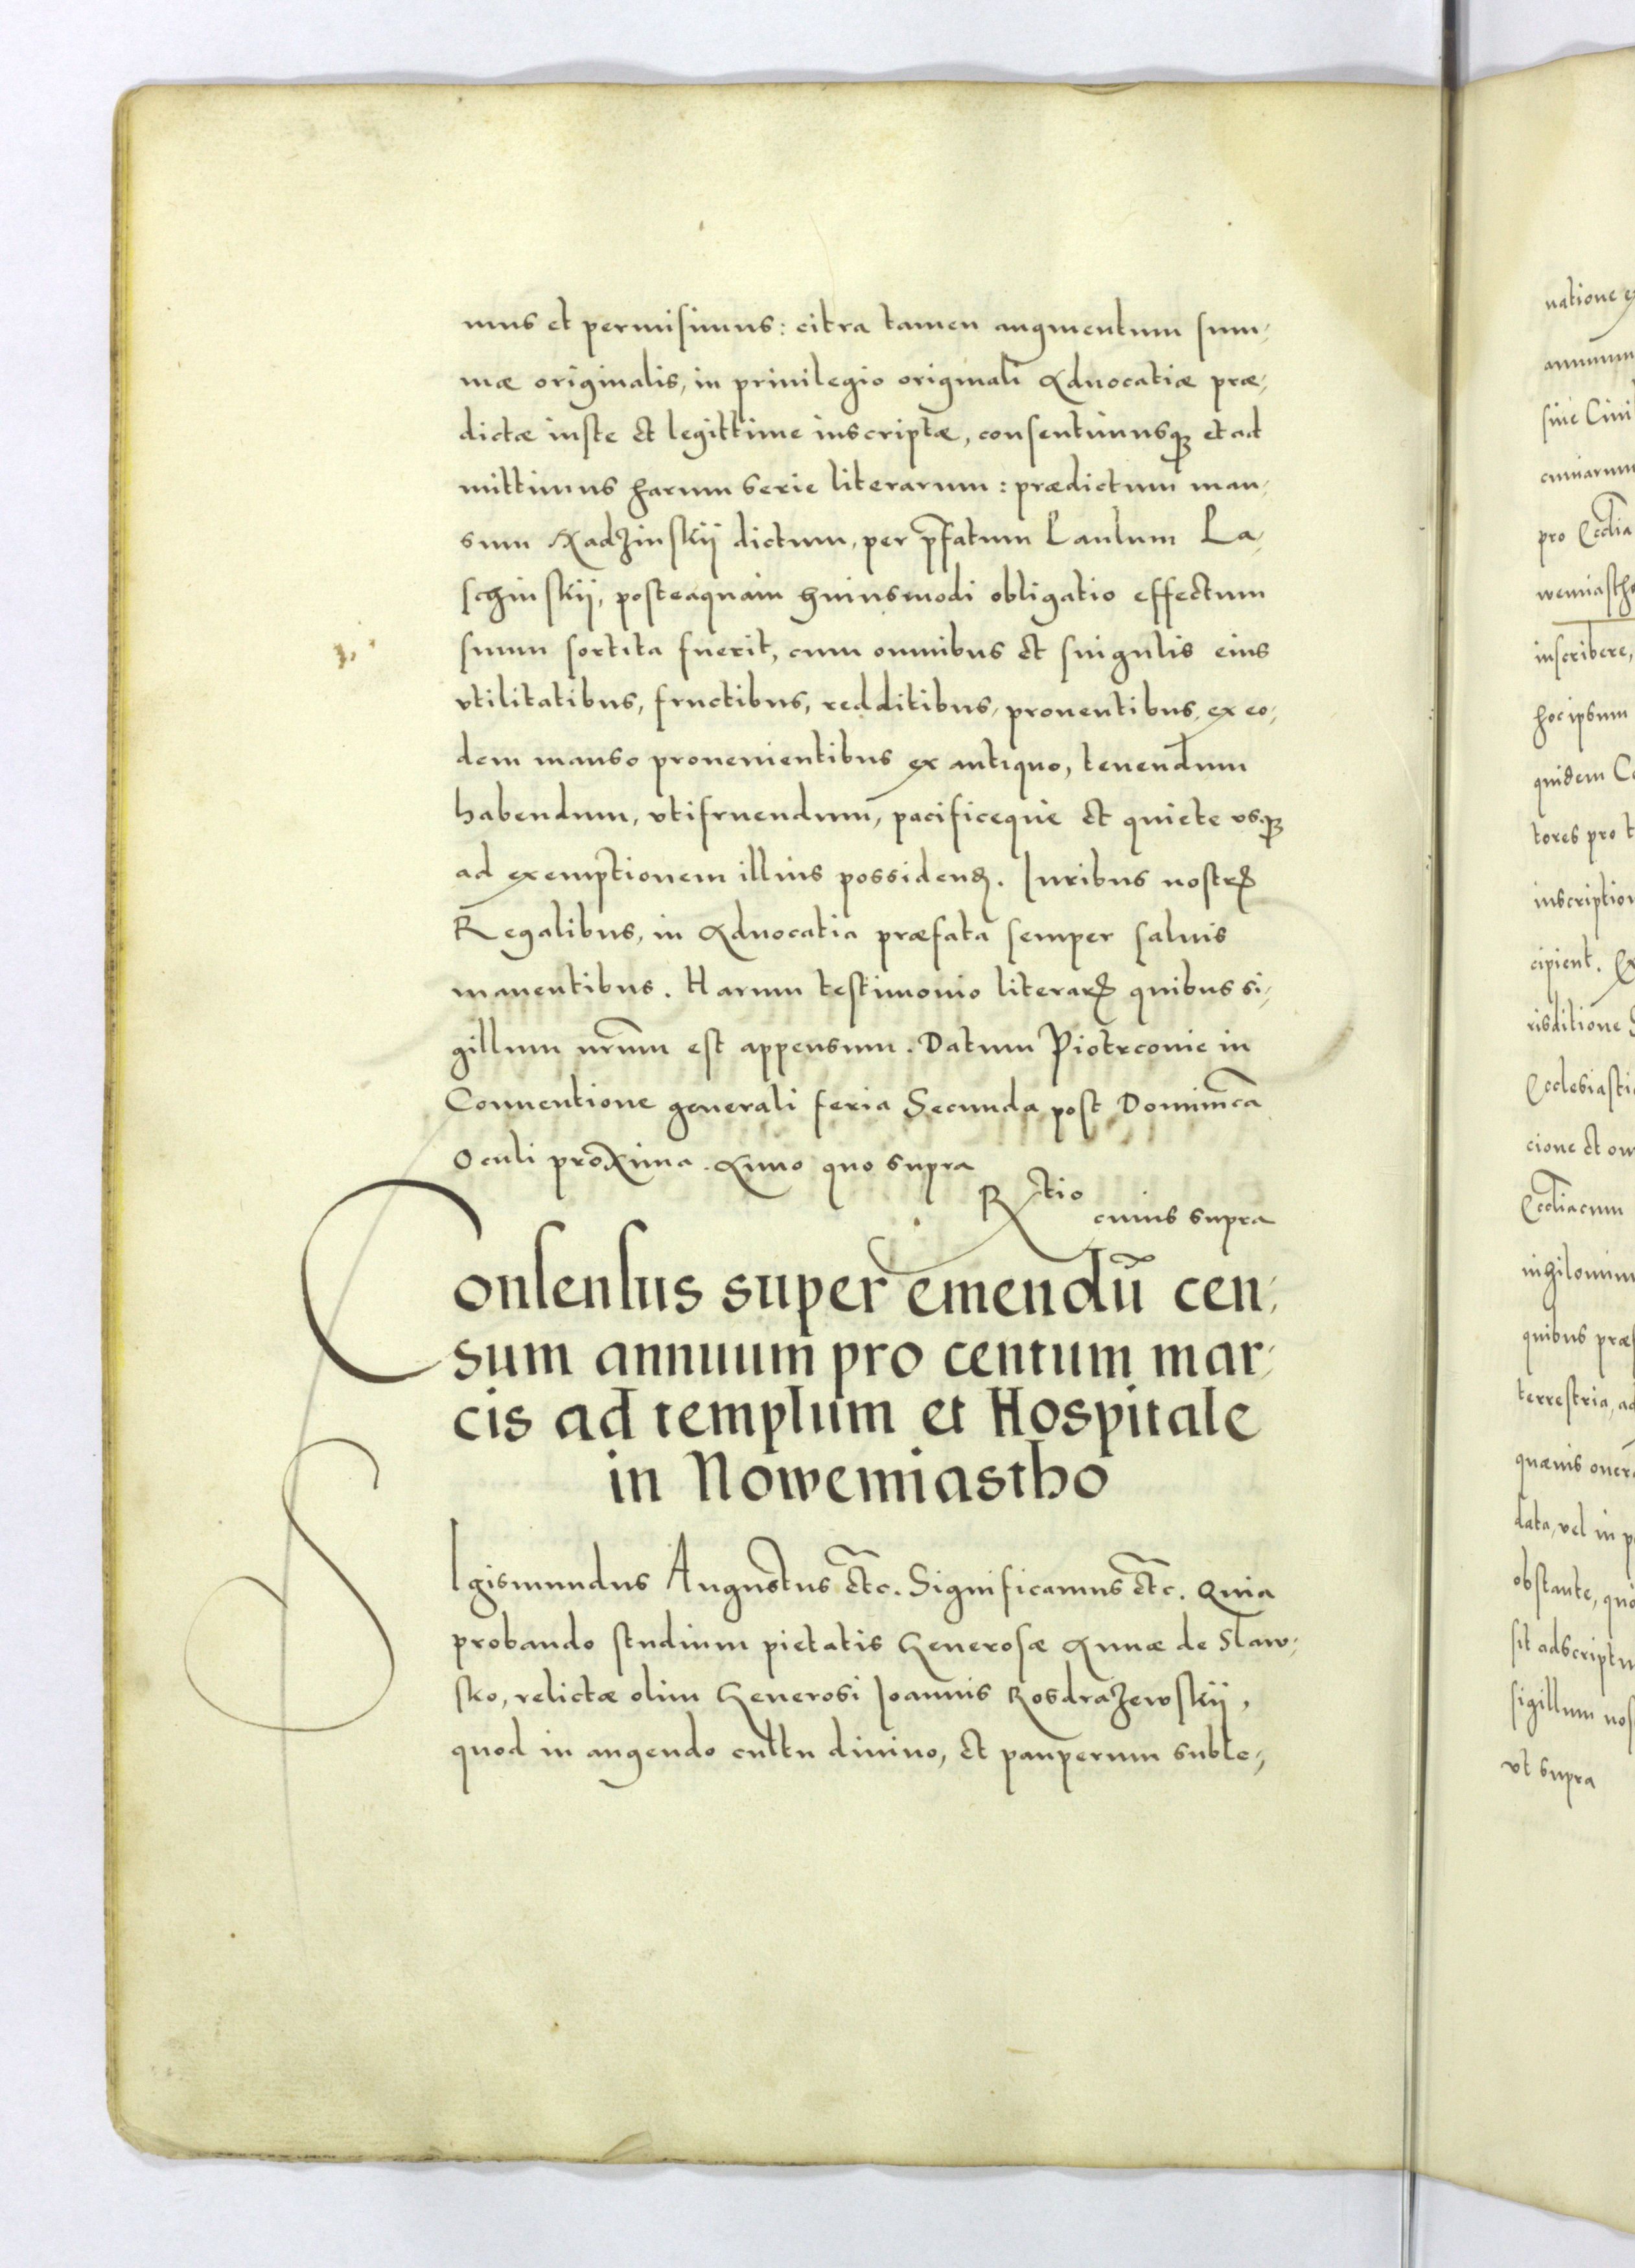 mus et permisimus: citra tamen augmentum sum-
mæ originalis, in priuilegio originali Aduocatiæ præ-
dictæ iuste et legittime inscriptæ, consentimusq; et ad
mittimus harum serie literarum: prædictum man-
sum Radzinskÿ dictum, per p̃fatum Paulum La-
schinskÿ, posteaquam huiusmodi obligatio effectum
suum sortita fuerit, cum omnibus et singulis eius
vtilitatibus, fructibus, redditibus, prouentibus, ex eo-
dem manso prouenientibus ex antiquo, tenendum
habendum, vtifruendum, pacificeque et quiete vsq;
ad exemptionem illius possidenđ. Iuribus nostrꝝ
Regalibus, in Aduocatia præfata semper saluis
manentibus. Harum testimonio literarꝝ quibus si-
gillum nr̃um est appensum. Datum Piotrconie in
Conuentione generali feria Secunda post Dominicã
Oculi proxima. Anno quo supra
Rtio
cuius supra
Consensus super emendũ cen-
sum annuum pro centum mar-
cis ad templum et Hospitale
in Nowemiastho
SIgismundus Augustus etc̃. Significamus etc̃. Quia
probando studium pietatis Generosæ Annæ de Slaw-
sko, relictæ olim Generosi Ioannis Rosdrazewskÿ,
quod in augendo cultu diuino, et pauperum suble-
natione
annuum
siue Ciui
pro Eccl̃ia
inscribere,
hoc ipsum
quidem
tores pro
inscription
cipient.
risditione
Ecclesiasti
cione et
Eccl̃iacum
quibus præ
terrestria, ad
quæuis
data, vel in
obstante,
sit adscriptu
sigillum nos
vt supra